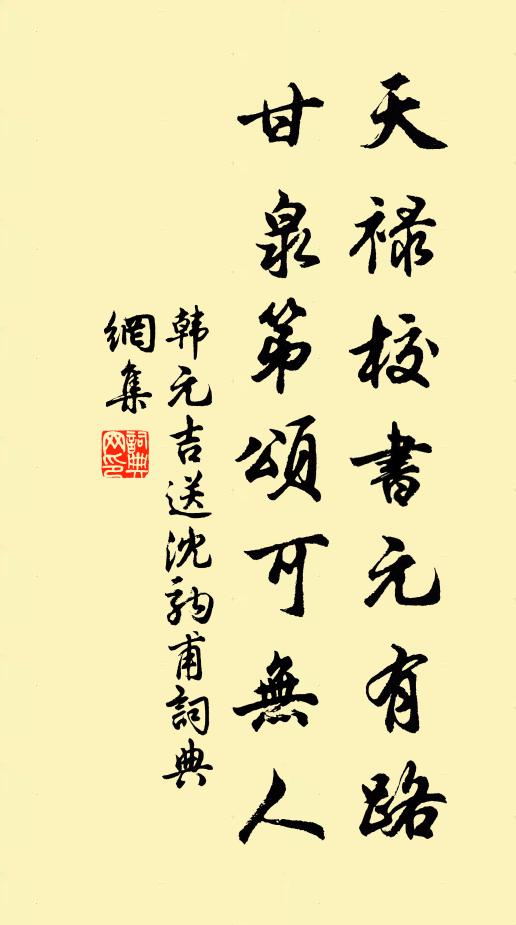 天禄校書元有路
甘泉第頌可無人
韩元吉送沈甫詞典
網集
詞典
网印